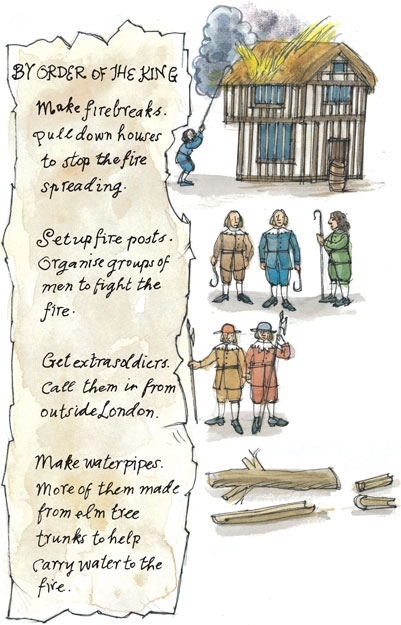 BY ORDER OF THE KING
Make firebreaks.
Pull down houses
to stop the fire
spreading.
Set up fire posts.
Organise groups of
men to fight the
fire.
Get extra soldiers.
Call them in from
outside London.
Make waterpipes.
More of them made
from elm tree
trunks to help
carry water to the
fire.